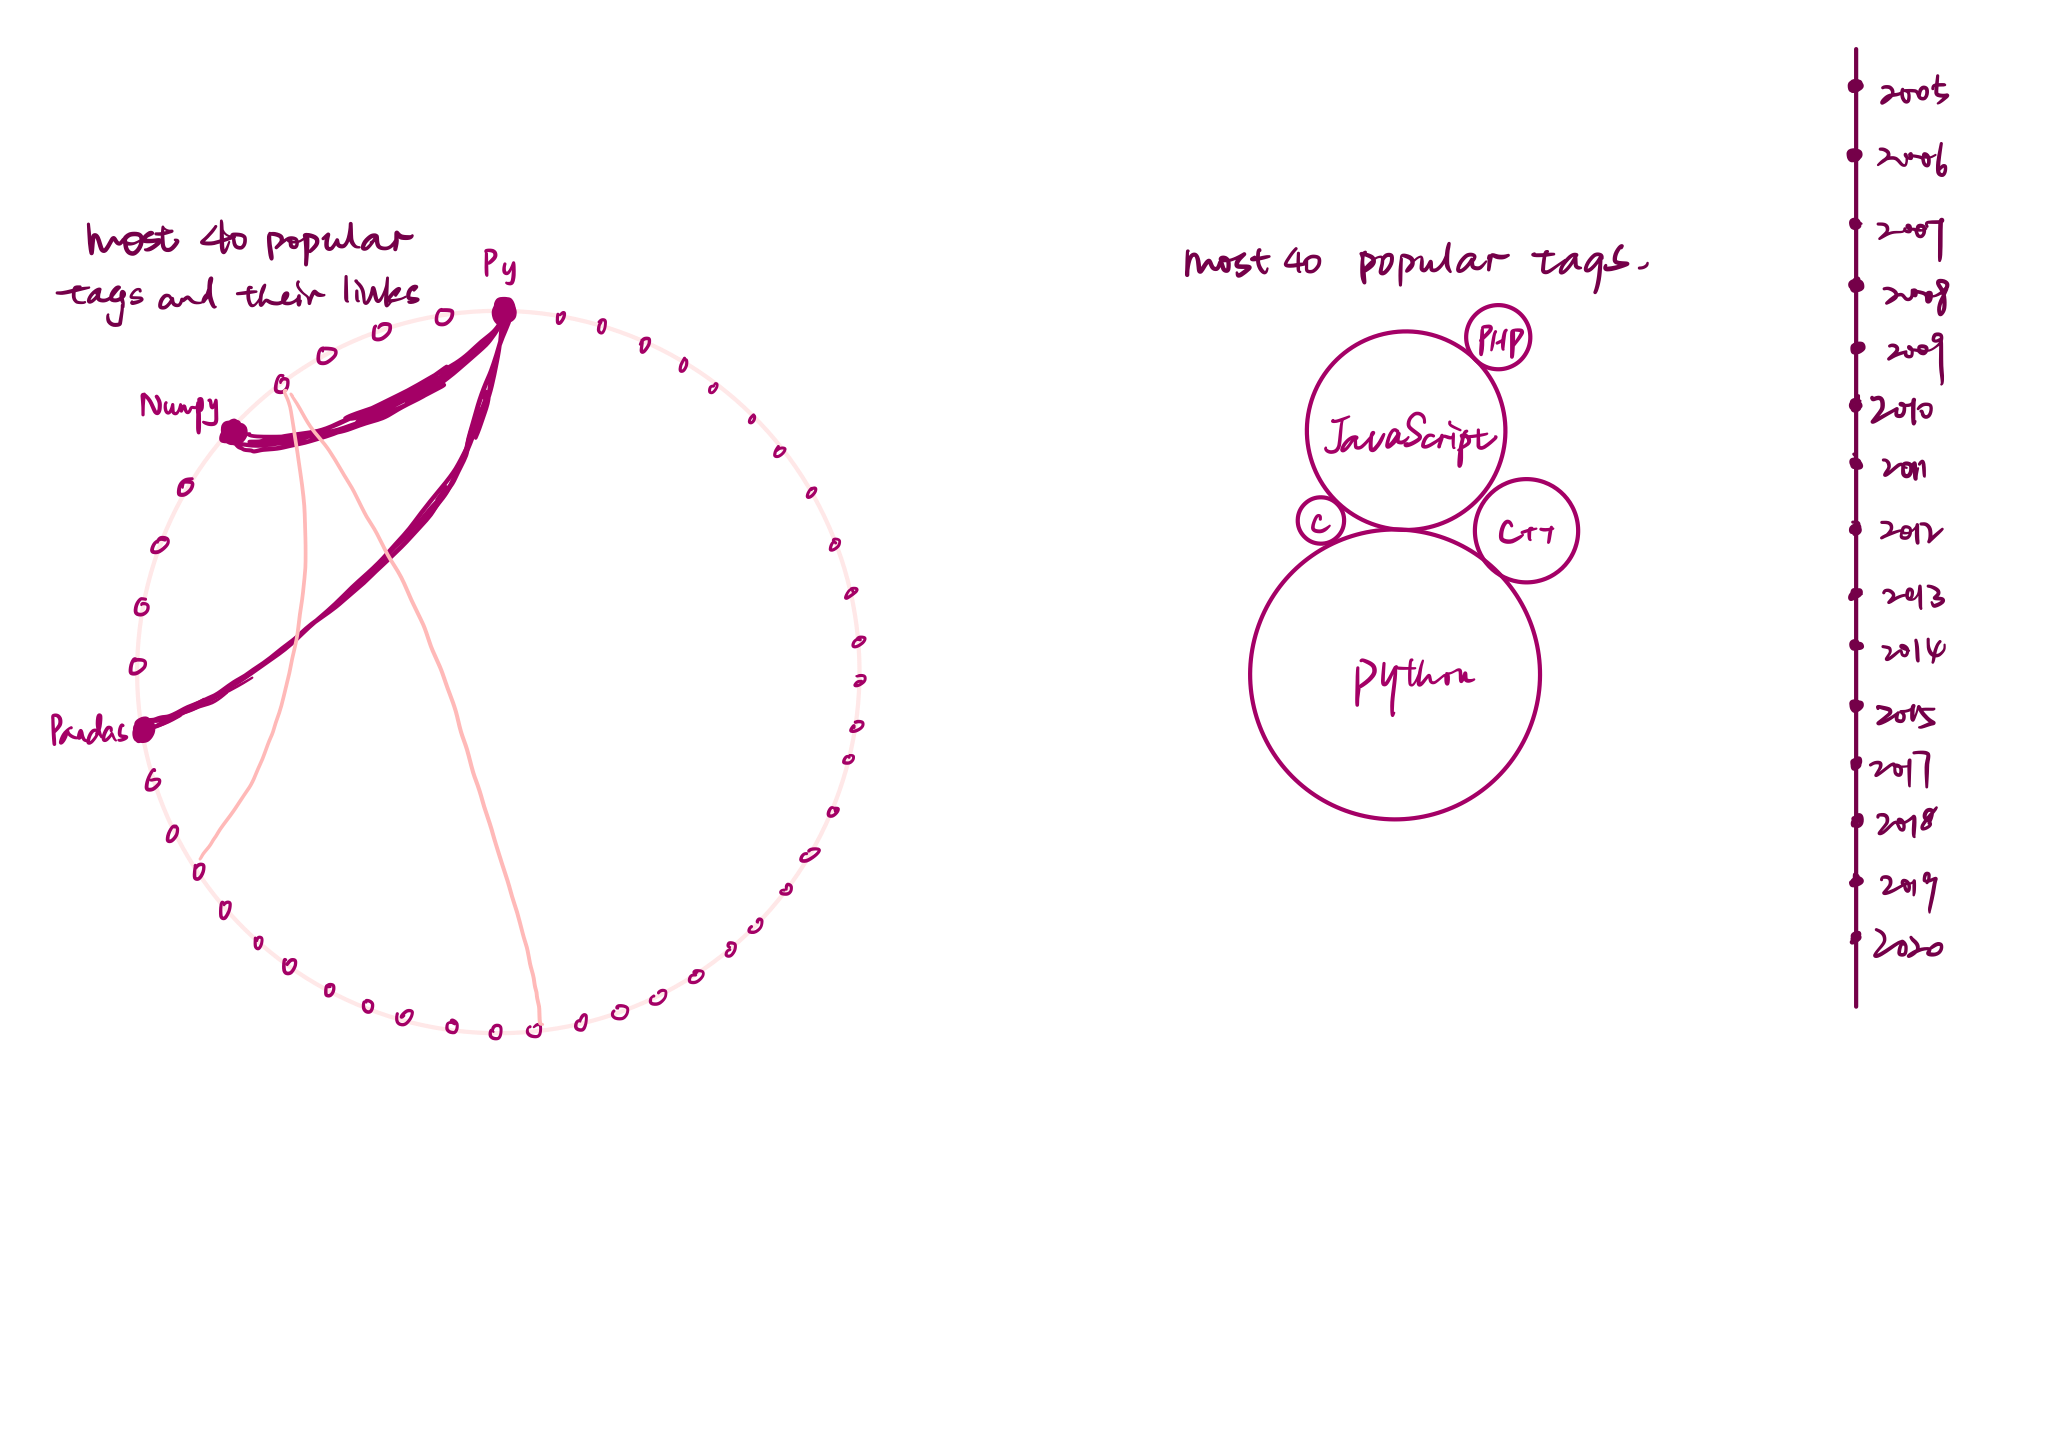 most 40 popular
tags and their links
Py
Numpy
Pandas
most 40 popular tags.
PHP
JavaScript
C
C++
Python
2005
2006
2007
2008
2009
2010
2011
2012
2013
2014
2015
2017
2018
2019
2020